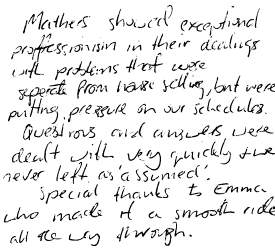 Mathers showed exceptional
proffessionism in their dealings
with problems that were
seperate from house selling, but were
putting pressure on our schedules.
Questions and answers were
dealt with very quickly & we
never left as 'assumed'.
Special thanks to Emma
who made it a smooth ride
all the way through.